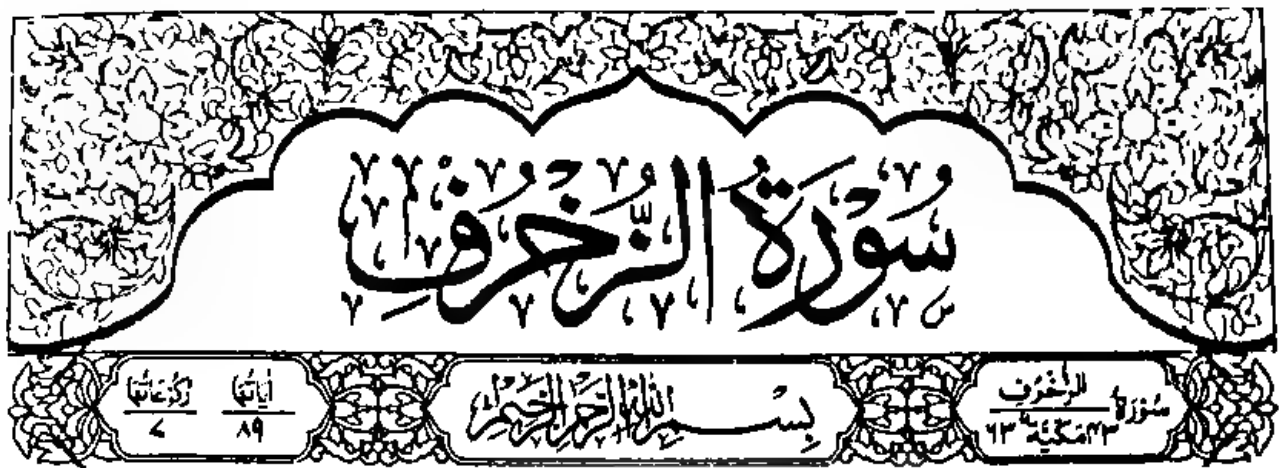 سُوْرَةُ الزُّخْرُفِ
سُوْرَةُ الزُّخْرُفِ ٤٣ مَكِّيَّةٌ ٦٣
بِسْمِ اللّٰهِ الرَّحْمٰنِ الرَّحِيْمِ
اٰيَاتُهَا ٨٩ رُكُوْعَاتُهَا ٧